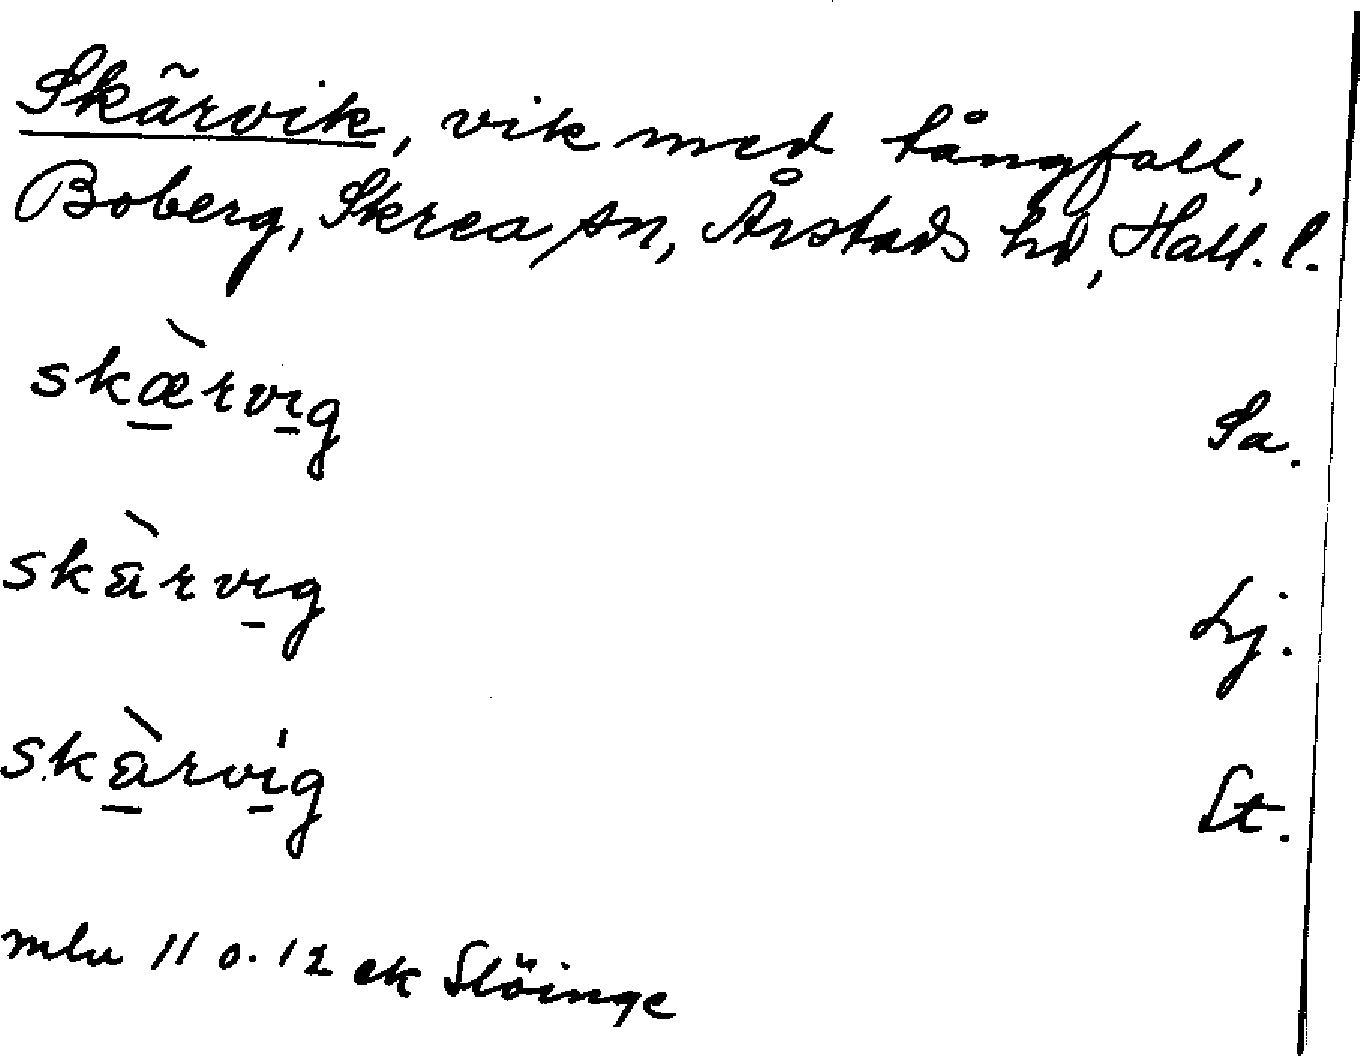 Skärvik, vik med tångfall,
Boberg, Skrea sn, Årstads hd, Hall. l.
skæ̀rvig Sa.
skàrvig Lj.
skàrvig St.
mlu 11 o. 12 ek Slöinge